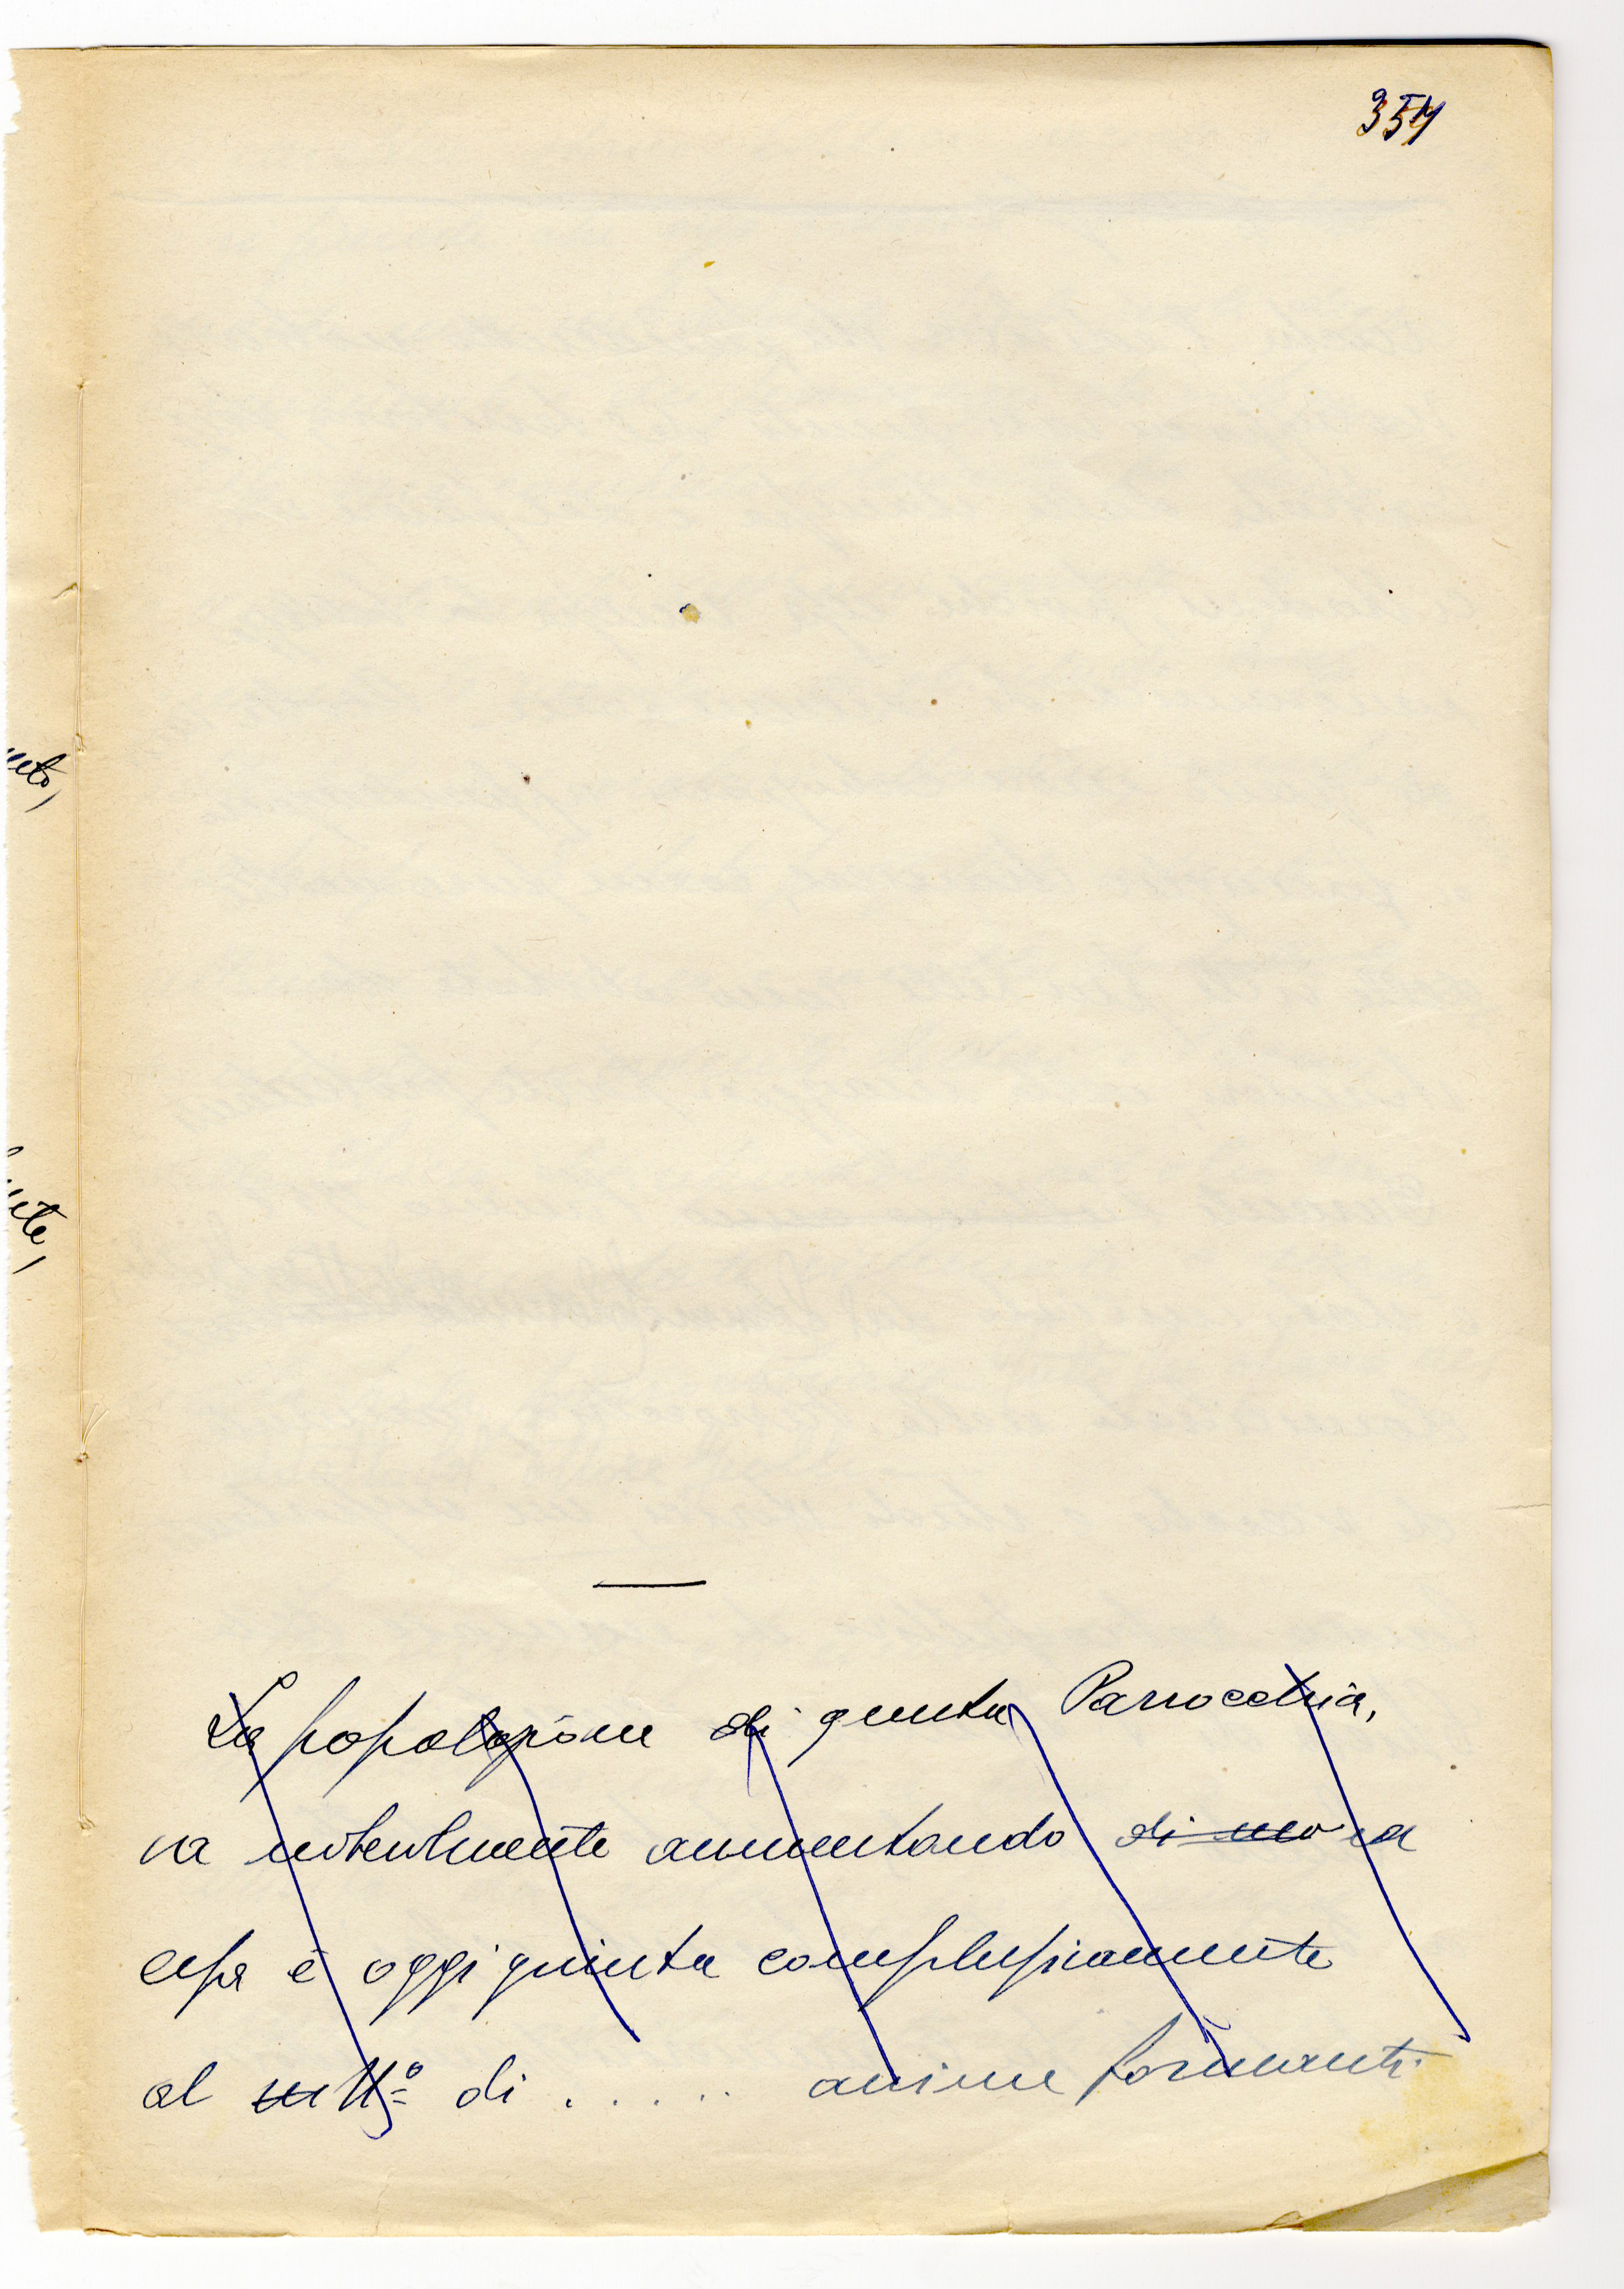 354
La popolazione di questa Parrocchia,
va notevolmente aumentando di mo ed
essa è oggi giunta complessivamente
al N° di ..... anime formanti